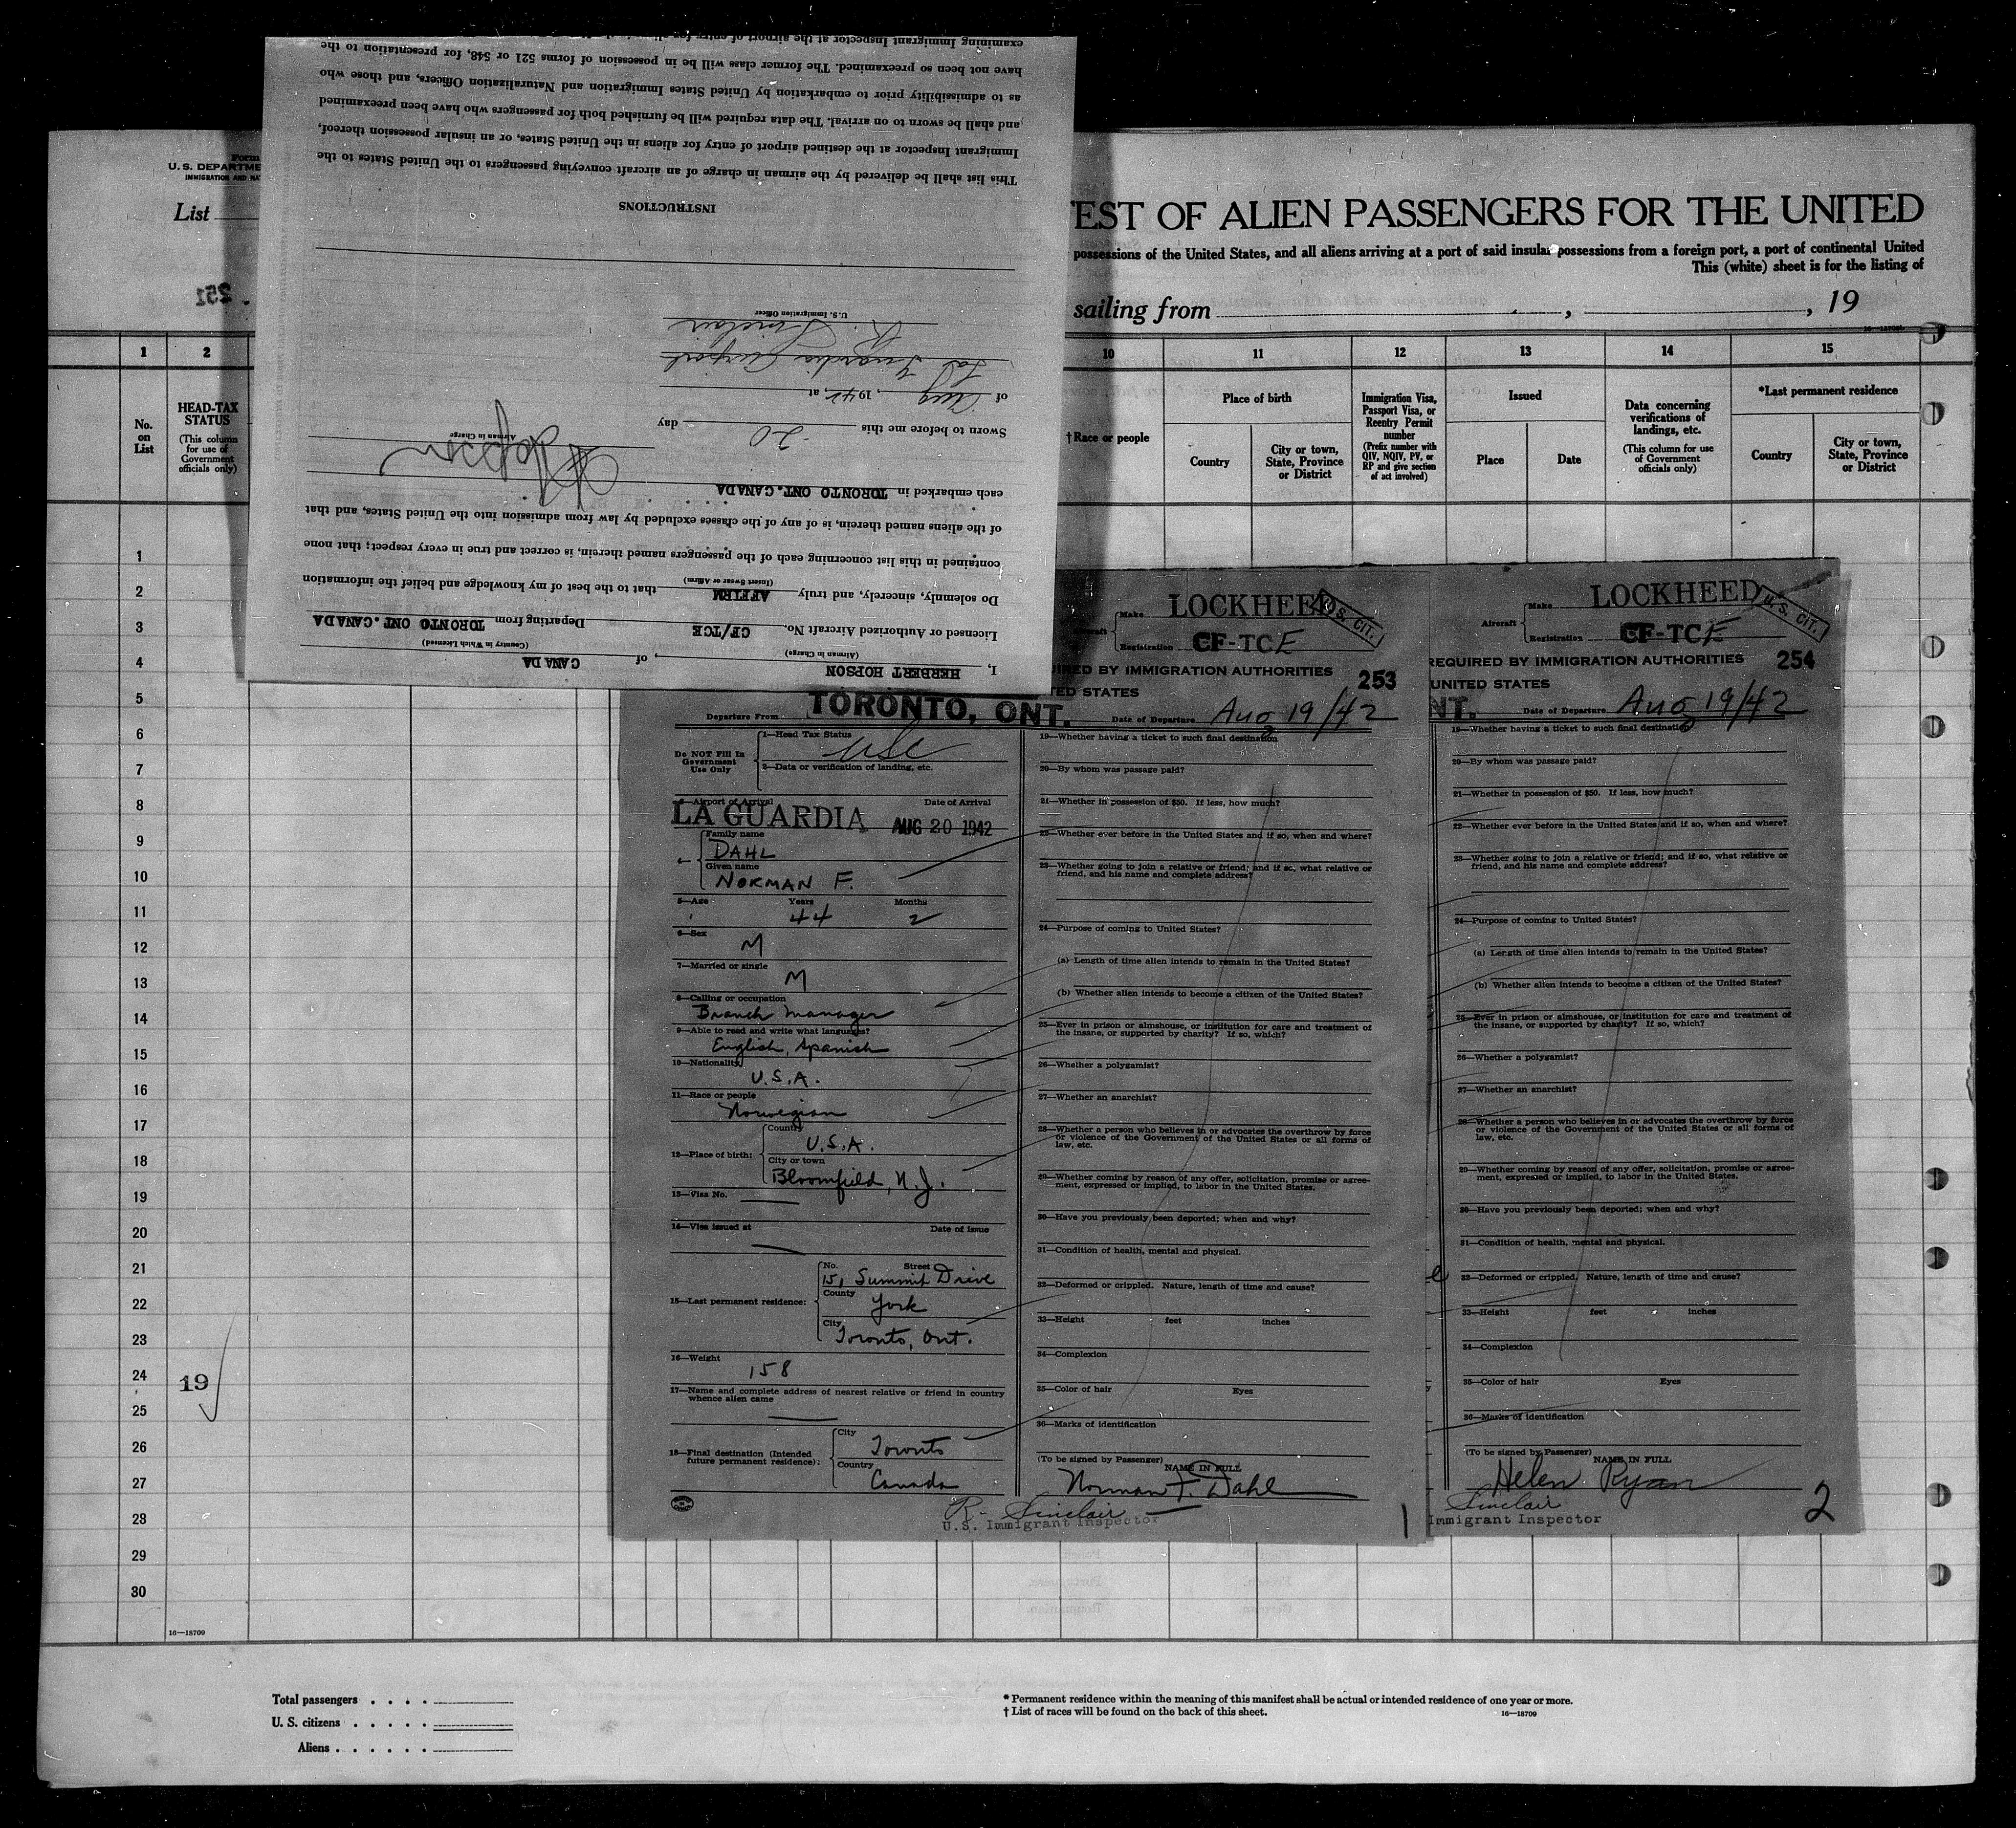 examining Immigrant Inspector at the airport of entry for
have not been so preexamined. The former class will be in possession of forms 521 or 548, for presentation to the
as to admissibility prior to embarkation by United States Immigration and Naturalization Officers, and those who
and shall be sworn to on arrival. The data required will be furnished both for passengers who have been preexamined
Immigrant Inspector at the destined airport of entry for aliens in the United States, or an insular possession thereof,
This list shall be delivered by the airman in charge of an aircraft conveying passengers to the United States to the
INSTRUCTIONS
U. S. Immigration Officer
R. Sinclair
La Guardia Airport
of Aug, 1942, at
Sworn to before me this 20 day
Airman in Charge
H Hopson
each embarked in TORONTO ONT. CANADA
of the aliens named therein, is of any of the classes excluded by law from admission into the United States, and that
contained in this list concerning each of the passengers named therein, is correct and true in every respect; that none
(Insert Swear or Affirm)
Do solemnly, sincerely, and truly AFFIRM that to the best of my knowledge and belief the information
Licensed or Authorized Aircraft No. CF/TCE Departing from TORONTO ONT. CANADA
(Airman in Charge) (Country in Which Licensed)
I, HERBERT HOPSON, of CANADA
Form
U. S. DEPARTME
IMMIGRATION AND NA
List
251
EST OF ALIEN PASSENGERS FOR THE UNITED
possessions of the United States, and all aliens arriving at a port of said insular possessions from a foreign port, a port of continental United
This (white) sheet is for the listing of
sailing from , , 19
1 2 10 11 12 13 14 15
No. on List
HEAD-TAX STATUS
(This column for use of Government officials only)
†Race or people
Place of birth
Country
City or town, State, Province or District
Immigration Visa, Passport Visa, or Reentry Permit number
(Prefix number with QIV, NQIV, PV, or RP and give section of act involved)
Issued
Place
Date
Data concerning verifications of landings, etc.
(This column for use of Government officials only)
*Last permanent residence
Country
City or town, State, Province or District
1
2
3
4
5
6
7
8
9
10
11
12
13
14
15
16
17
18
19
20
21
22
23
24
25
26
27
28
29
30
19
16—18709
Make LOCKHEED
U. S. CIT.
Registration CF-TCE
IRED BY IMMIGRATION AUTHORITIES 253
TED STATES
Departure From TORONTO, ONT. Date of Departure Aug 19/42
Do NOT Fill In
Government
Use Only
1—Head Tax Status
USC
2—Data or verification of landing, etc.
3—Airport of Arrival Date of Arrival
LA GUARDIA AUG 20 1942
4—
Family name
DAHL
Given name
NORMAN F.
5—Age Years Months
44 2
6—Sex
M
7—Married or single
M
8—Calling or occupation
Branch manager
9—Able to read and write what languages?
English, Spanish
10—Nationality
U.S.A.
11—Race or people
Norwegian
12—Place of birth:
Country
U.S.A.
City or town
Bloomfield, N.J.
13—Visa No.
14—Visa issued at Date of Issue
15—Last permanent residence:
No. Street
151 Summit Drive
County
York
City
Toronto, Ont.
16—Weight
158
17—Name and complete address of nearest relative or friend in country
whence alien came
18—Final destination (Intended
future permanent residence):
City
Toronto
Country
Canada
19—Whether having a ticket to such final destination
20—By whom was passage paid?
21—Whether in possession of $50. If less, how much?
22—Whether ever before in the United States and if so, when and where?
23—Whether going to join a relative or friend; and if so, what relative or
friend, and his name and complete address?
24—Purpose of coming to United States?
(a) Length of time alien intends to remain in the United States?
(b) Whether alien intends to become a citizen of the United States?
25—Ever in prison or almshouse, or institution for care and treatment of
the insane, or supported by charity? If so, which?
26—Whether a polygamist?
27—Whether an anarchist?
28—Whether a person who believes in or advocates the overthrow by force
or violence of the Government of the United States or all forms of
law, etc.
29—Whether coming by reason of any offer, solicitation, promise or agree-
ment, expressed or implied, to labor in the United States.
30—Have you previously been deported; when and why?
31—Condition of health, mental and physical.
32—Deformed or crippled. Nature, length of time and cause?
33—Height feet inches
34—Complexion
35—Color of hair Eyes
36—Marks of identification
(To be signed by Passenger)
NAME IN FULL
Norman F. Dahl
R. Sinclair
U.S. Immigrant Inspector
1
Aircraft
Make LOCKHEED
U. S. CIT.
Registration CF-TCE
REQUIRED BY IMMIGRATION AUTHORITIES 254
UNITED STATES
NT. Date of Departure Aug 19/42
19—Whether having a ticket to such final destination
20—By whom was passage paid?
21—Whether in possession of $50. If less, how much?
22—Whether ever before in the United States and if so, when and where?
23—Whether going to join a relative or friend; and if so, what relative or
friend, and his name and complete address?
24—Purpose of coming to United States?
(a) Length of time alien intends to remain in the United States?
(b) Whether alien intends to become a citizen of the United States?
25—Ever in prison or almshouse, or institution for care and treatment of
the insane, or supported by charity? If so, which?
26—Whether a polygamist?
27—Whether an anarchist?
28—Whether a person who believes in or advocates the overthrow by force
or violence of the Government of the United States or all forms of
law, etc.
29—Whether coming by reason of any offer, solicitation, promise or agree-
ment, expressed or implied, to labor in the United States.
30—Have you previously been deported; when and why?
31—Condition of health, mental and physical.
32—Deformed or crippled. Nature, length of time and cause?
33—Height feet inches
34—Complexion
35—Color of hair Eyes
36—Marks of identification
(To be signed by Passenger)
NAME IN FULL
Helen Ryan
Sinclair
Immigrant Inspector
2
Total passengers
U. S. citizens
Aliens
* Permanent residence within the meaning of this manifest shall be actual or intended residence of one year or more.
† List of races will be found on the back of this sheet.
16—18709